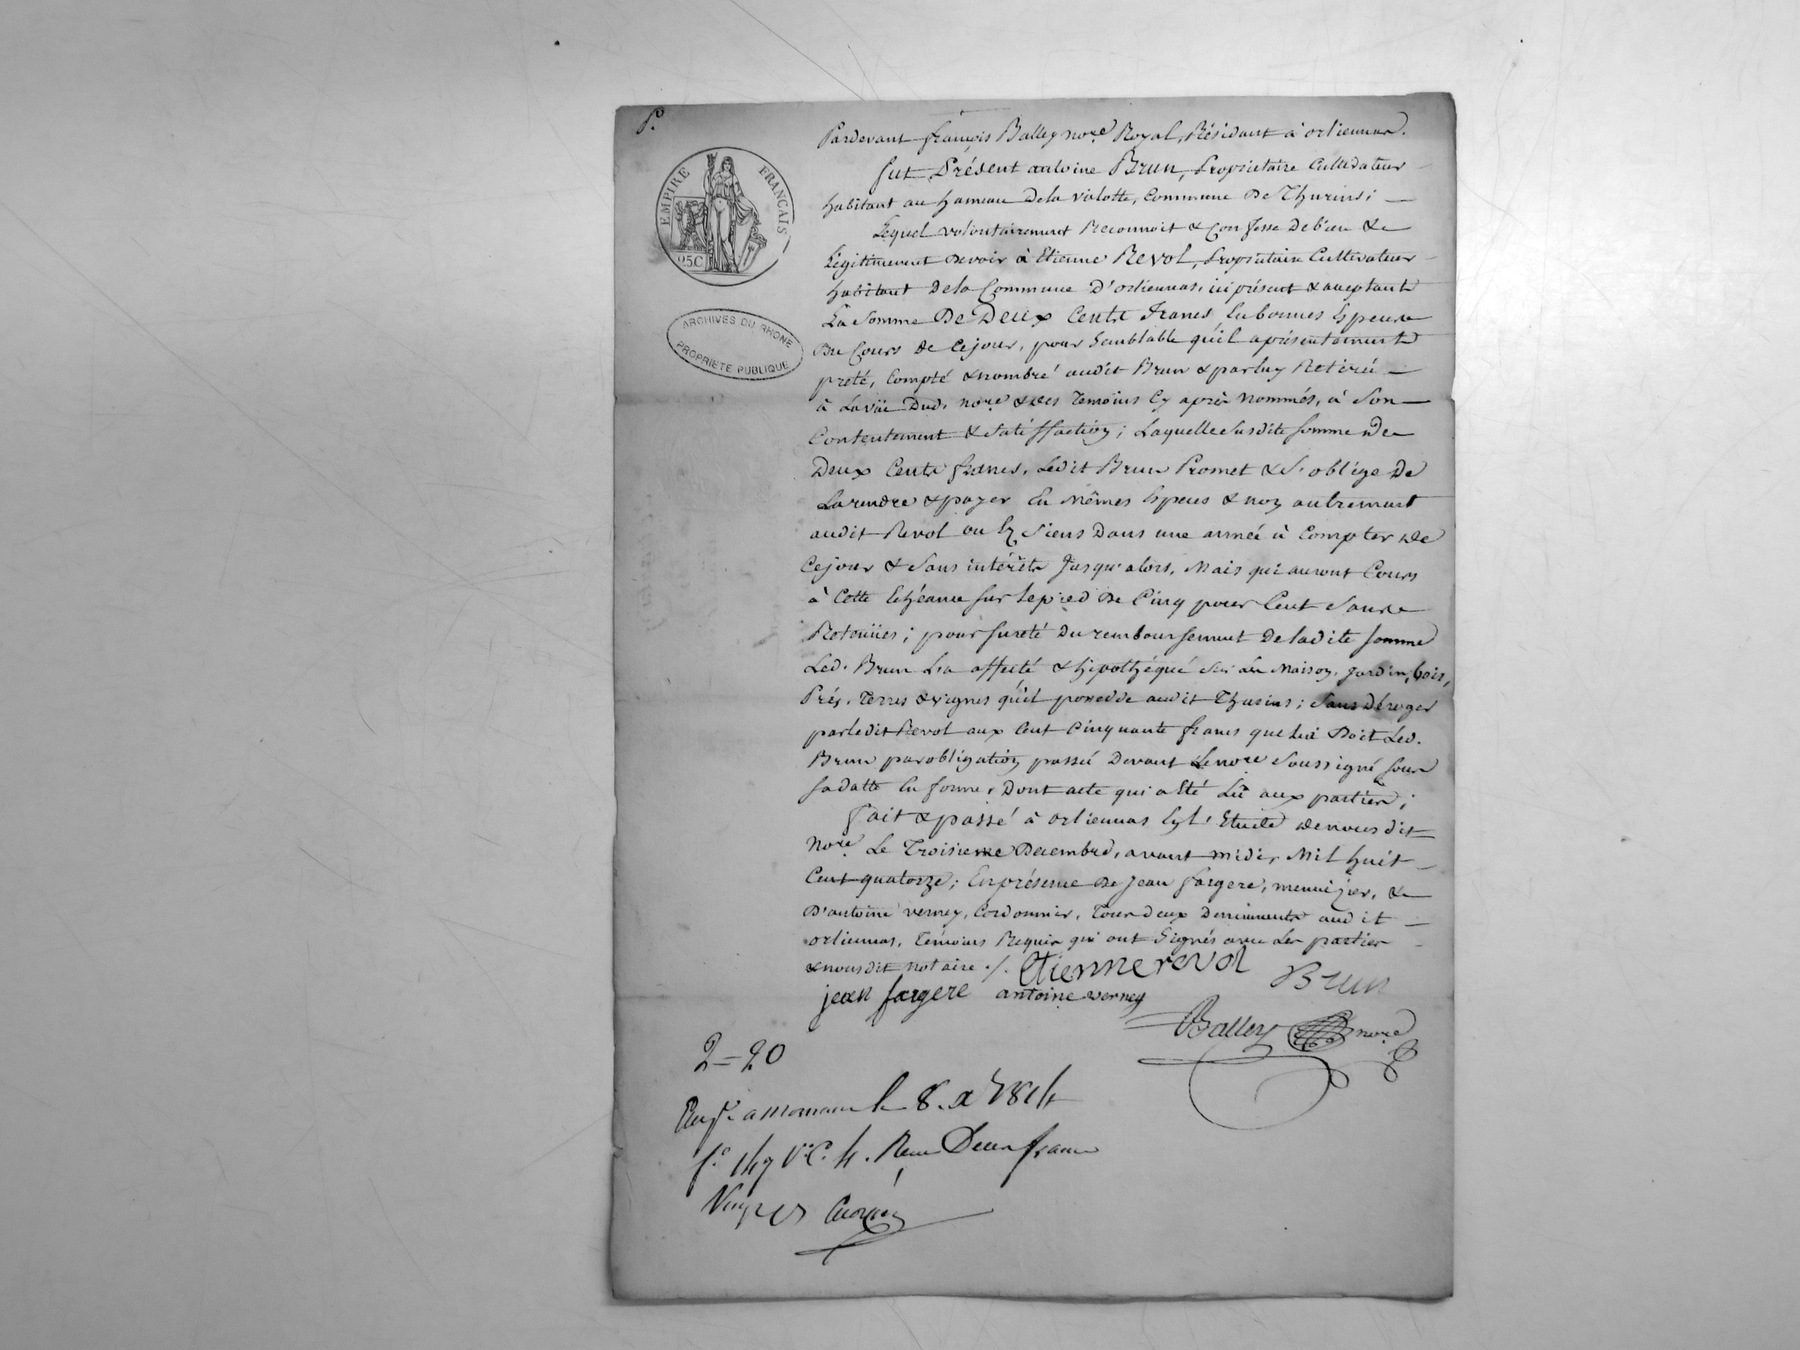 P.
EMPIRE FRANÇAIS
25C
ARCHIVES DU RHONE
PROPRIETE PUBLIQUE
Pardevant françois Balley no.re Royal, Résidant à orliennas.
fut Présent antoine Brun, Propriétaire Cultivateur
habitant au hameau dela violotte, Commune De Thurins;
Lequel volontairement Reconnoit & Confesse debien &
Légitimement Devoir à Etienne Revol, Propriétaire Cultivateur
habitant dela Commune d'orliennas, ici présent & acceptant
La Somme De Deux Cents francs En bonnes Especes
Du Cours de Cejour, pour Semblable quil aprésentement
preté, Compté & nombré audit Brun & parluy Retiré
à Lavüe Dud. no.re & des Temoins Cy après Nommés, à Son
Contentement & Satisffaction; Laquelle Susdite Somme De
Deux Cents francs, Ledit Brun Promet & S'oblige De
Larendre & payer En Mêmes Especes & non autrement
audit Revol ou Es Siens Dans une année à Compter De
Cejour & Sans intérêts Jusqu'alors, Mais qui auront Cours
à Cette Echéance Sur Lepied De Cinq pour Cent Sans
Retenües; pour Sureté Du remboursement De ladite Somme
Led. Brun L'a affecté & hipothéqué Sur La Maison, Jardin, bois,
Prés, Terres & vignes quil possedde audit Thurins; Sans Déroger
parledit Revol aux Cent Cinquante francs que Lui Doit Led.
Brun par obligation passée Devant Leno.re Soussigné Sous
Sa datte En forme, Dont acte qui a Eté Lû aux parties;
fait & passé à orliennas Es L'Etude de nous dit
No.re Le Troisieme Decembre, avant midi, Mil huit
Cent quatorze; En présence De Jean fargere, menuizier, &
D'antoine verney, Cordonnier, Tous deux Demeurants audit
orliennas, Témoins Requis qui ont Signés avec Les parties
& nousdit notaire ./. Etienne revol Brun
jean fargere antoine verney
Balley no.re
2=20
le 8. X 1814
f.o 149 V.o C. 4. Reçu Deux francs
Vingt